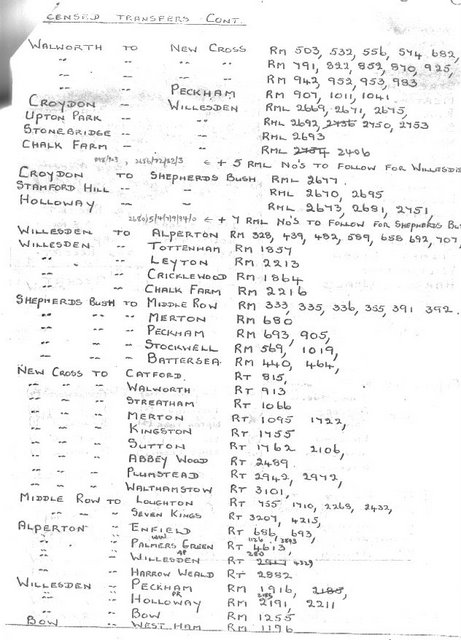 CENSED TRANSFERS CONT.
WALWORTH TO NEW CROSS RM 503, 532, 556, 574, 682,
" " " " RM 791, 822, 852, 870, 925,
" " " " RM 942, 952, 953, 983
" " PECKHAM RM 907, 1011, 1041.
CROYDON - WILLESDEN RML 2669, 2671, 2675,
UPTON PARK - " RML 2692, 2736 2750, 2753
STONEBRIDGE - " RML 2693
CHALK FARM - " RML 2406
← + 5 RML NO'S TO FOLLOW FOR WILLESDEN
CROYDON TO SHEPHERDS BUSH RML 2677.
STAMFORD HILL - " RML 2670, 2695
HOLLOWAY - " RML 2673, 2681, 2751,
← + 7 RML NO'S TO FOLLOW FOR SHEPHERDS BU
WILLESDEN TO ALPERTON RM 328, 439, 482, 589, 658 692, 707,
WILLESDEN " TOTTENHAM RM 1857
" " LEYTON RM 2213
" " CRICKLEWOOD RM 1864
" " CHALK FARM RM 2216
SHEPHERDS BUSH TO MIDDLE ROW RM 333, 335, 336, 355, 391 392.
" " " MERTON RM 680
" " " PECKHAM RM 693, 905,
" " " STOCKWELL RM 569, 1019,
" " " BATTERSEA RM 440, 464,
NEW CROSS TO CATFORD RT 815,
" " " WALWORTH RT 913
" " " STREATHAM RT 1066
" " " MERTON RT 1095 1722,
" " " KINGSTON RT 1755
" " " SUTTON RT 1762 2106,
" " " ABBEY WOOD RT 2489
" " " PLUMSTEAD RT 2942, 2972,
" " " WALTHAMSTOW RT 3101,
MIDDLE ROW TO LOUGHTON RT 755 1710, 2268, 2432,
" " " SEVEN KINGS RT 3207, 4215,
ALPERTON " ENFIELD RT 686, 693,
" " PALMERS GREEN RT 4613,
" " WILLESDEN RT 4329
" " HARROW WEALD RT 2882
WILLESDEN " PECKHAM RM 1916, 2185,
" " HOLLOWAY RM 2191, 2211
" " BOW RM 1255
BOW " WEST HAM RM 1196